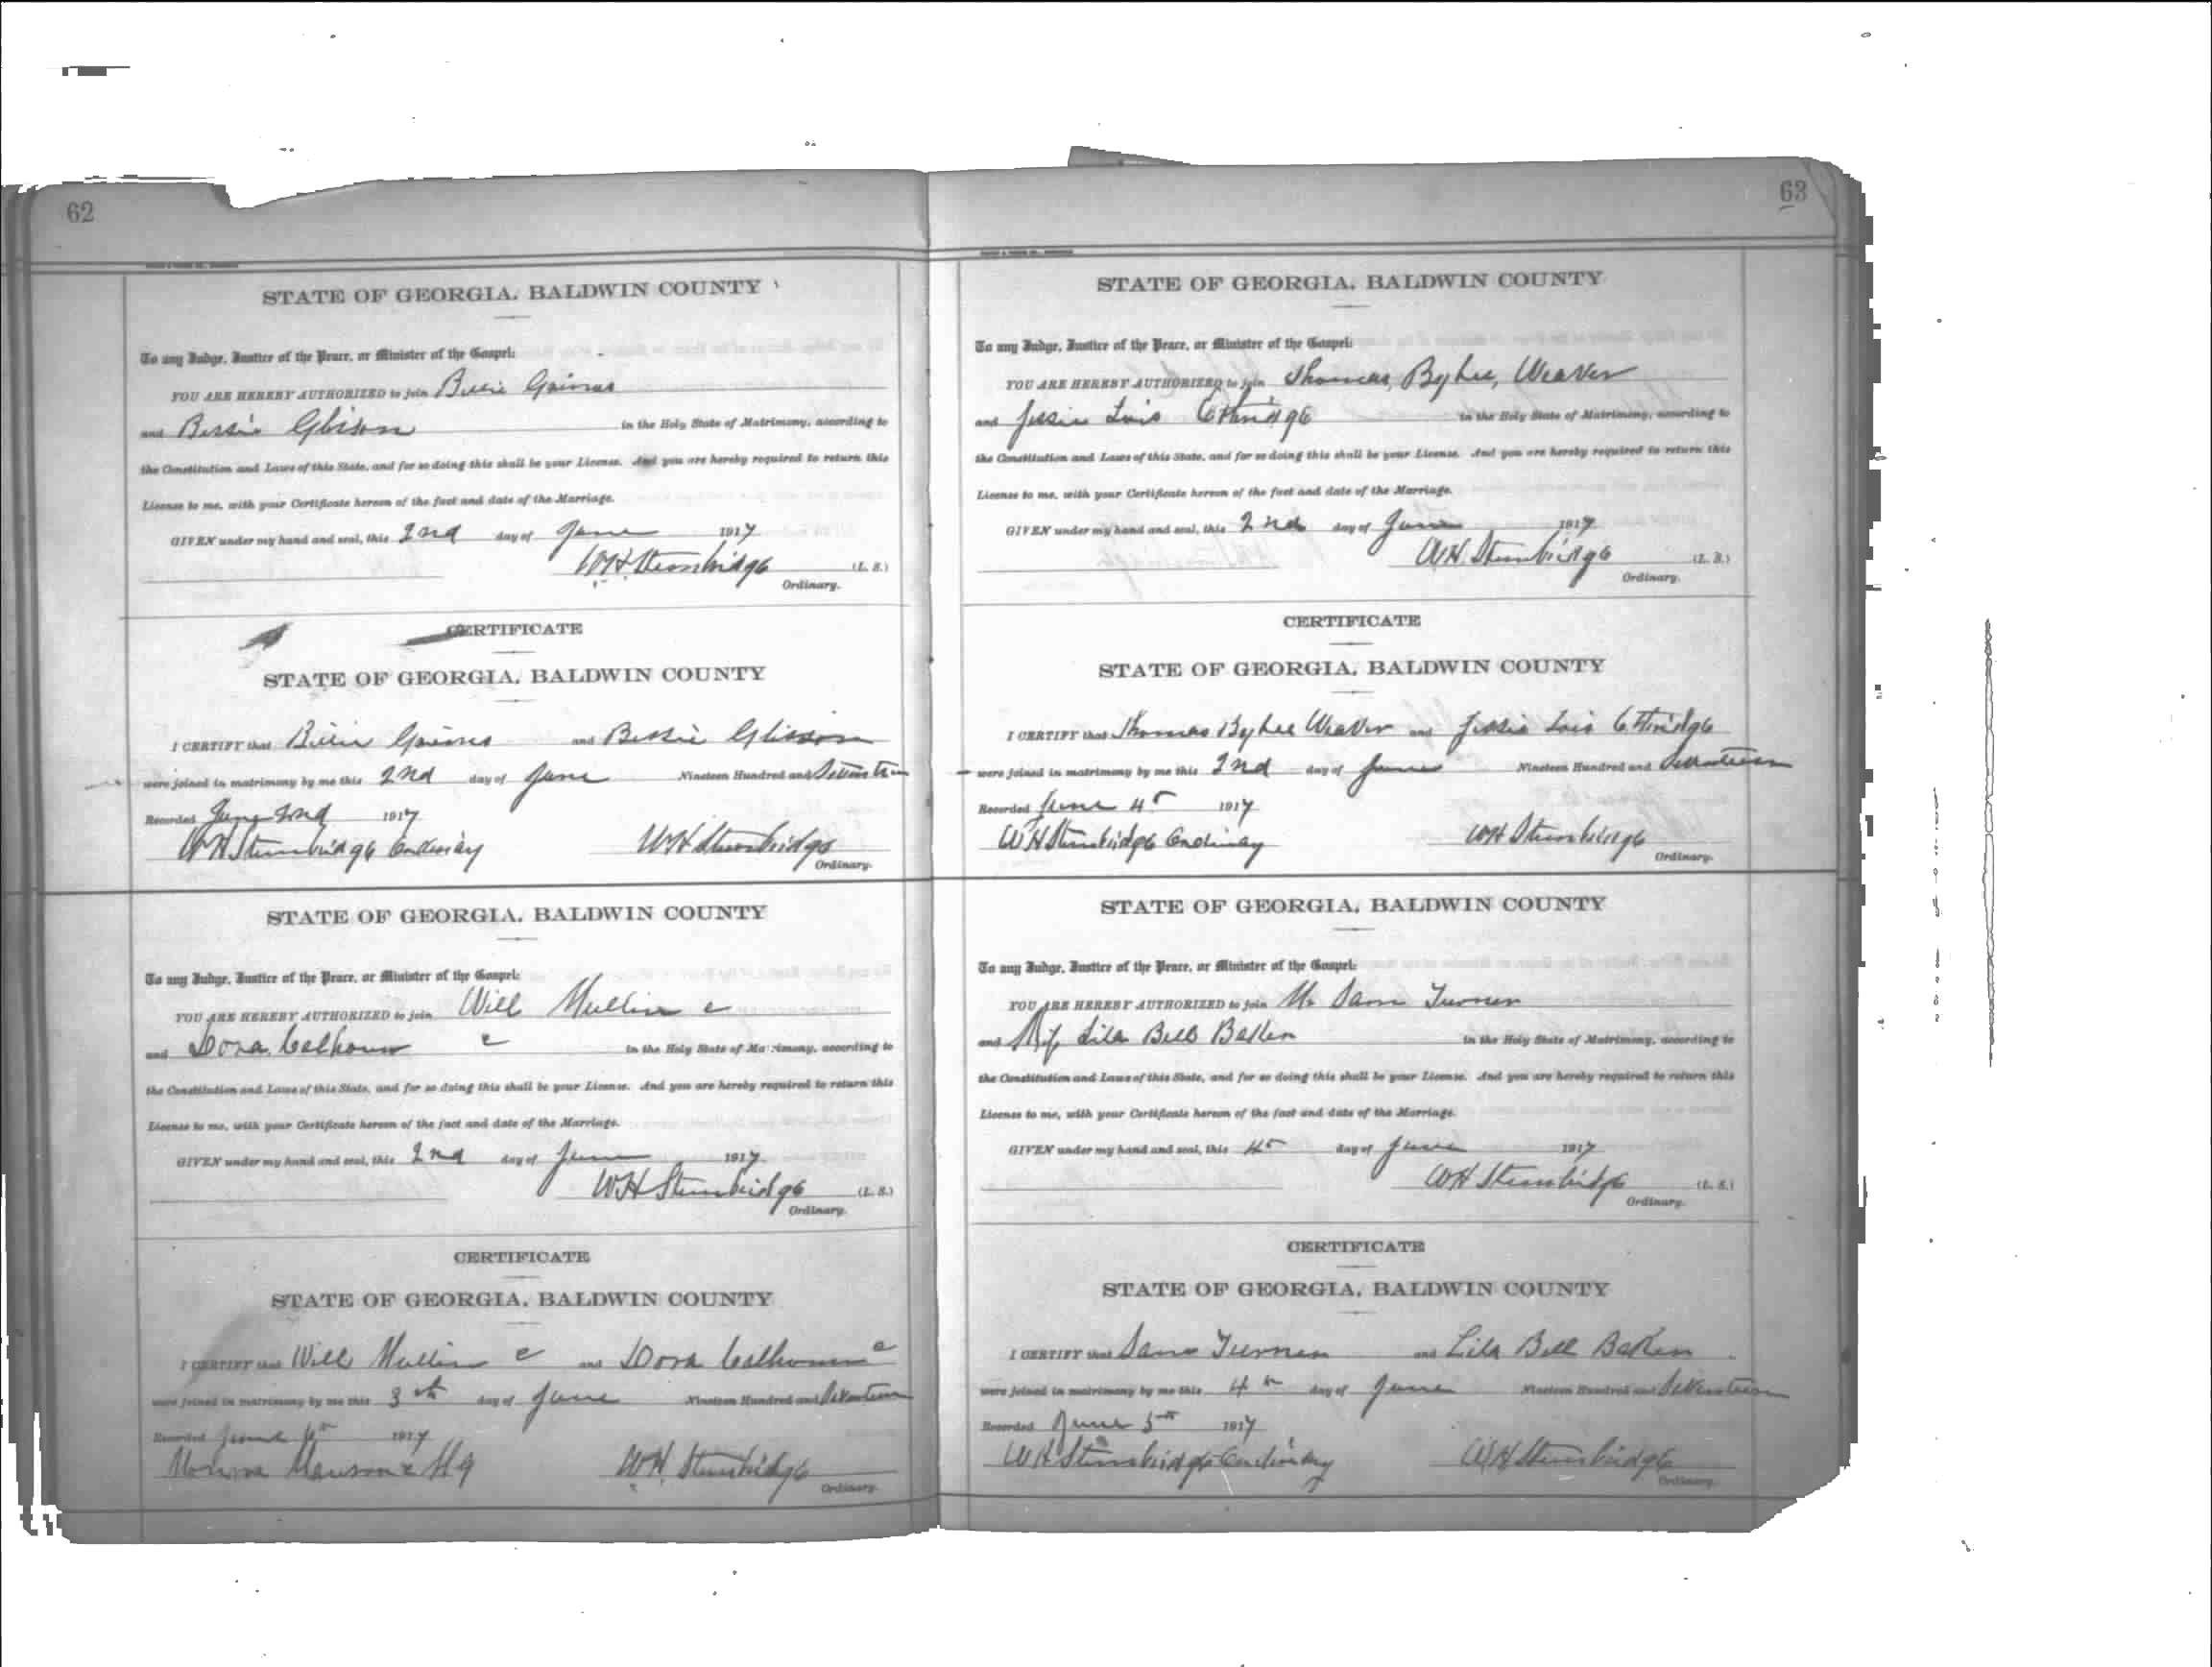 62
STATE OF GEORGIA, BALDWIN COUNTY
To any Judge, Justice of the Peace, or Minister of the Gospel:
YOU ARE HEREBY AUTHORIZED to join Billie Gaines
and Bessie Glison in the Holy State of Matrimony, according to
the Constitution and Laws of this State, and for so doing this shall be your License. And you are hereby required to return this
License to me, with your Certificate hereon of the fact and date of the Marriage.
GIVEN under my hand and seal, this 2nd day of June 1917
WH Stembridge (L. S.)
Ordinary.
CERTIFICATE
STATE OF GEORGIA, BALDWIN COUNTY
I CERTIFY that Billie Gaines and Bessie Glisson
were joined in matrimony by me this 2nd day of June Nineteen Hundred and Seventeen
Recorded June 2nd 1917
WH Stembridge Ordinary WH Stembridge
Ordinary.
STATE OF GEORGIA, BALDWIN COUNTY
To any Judge, Justice of the Peace, or Minister of the Gospel:
YOU ARE HEREBY AUTHORIZED to join Will Mullin c
and Dora Calhoun c in the Holy State of Matrimony, according to
the Constitution and Laws of this State, and for so doing this shall be your License. And you are hereby required to return this
License to me, with your Certificate hereon of the fact and date of the Marriage.
GIVEN under my hand and seal, this 2nd day of June 1917
WH Stembridge (L. S.)
Ordinary.
CERTIFICATE
STATE OF GEORGIA, BALDWIN COUNTY
I CERTIFY that Will Mullin c and Dora Calhoun c
were joined in matrimony by me this 3th day of June Nineteen Hundred and Seventeen
Recorded June 1917
WH Stembridge
Ordinary.
63
STATE OF GEORGIA, BALDWIN COUNTY
To any Judge, Justice of the Peace, or Minister of the Gospel:
YOU ARE HEREBY AUTHORIZED to join Thomas, Byhee, Weaver
and Jessie Lois Ethridge in the Holy State of Matrimony, according to
the Constitution and Laws of this State, and for so doing this shall be your License. And you are hereby required to return this
License to me, with your Certificate hereon of the fact and date of the Marriage.
GIVEN under my hand and seal, this 2nd day of June 1917
WH Stembridge (L. S.)
Ordinary.
CERTIFICATE
STATE OF GEORGIA, BALDWIN COUNTY
I CERTIFY that Thomas Byhee Weaver and Jessie Lois Ethridge
were joined in matrimony by me this 2nd day of June Nineteen Hundred and Seventeen
Recorded June 4th 1917
WH Stembridge Ordinary WH Stembridge
Ordinary.
STATE OF GEORGIA, BALDWIN COUNTY
To any Judge, Justice of the Peace, or Minister of the Gospel:
YOU ARE HEREBY AUTHORIZED to join Mr Sam Turner
and Lila Bell Baker in the Holy State of Matrimony, according to
the Constitution and Laws of this State, and for so doing this shall be your License. And you are hereby required to return this
License to me, with your Certificate hereon of the fact and date of the Marriage.
GIVEN under my hand and seal, this 4th day of June 1917
WH Stembridge (L. S.)
Ordinary.
CERTIFICATE
STATE OF GEORGIA, BALDWIN COUNTY
I CERTIFY that Sam Turner and Lila Bell Baker
were joined in matrimony by me this 4th day of June Nineteen Hundred and Seventeen
Recorded June 5th 1917
WH Stembridge Ordinary WH Stembridge
Ordinary.